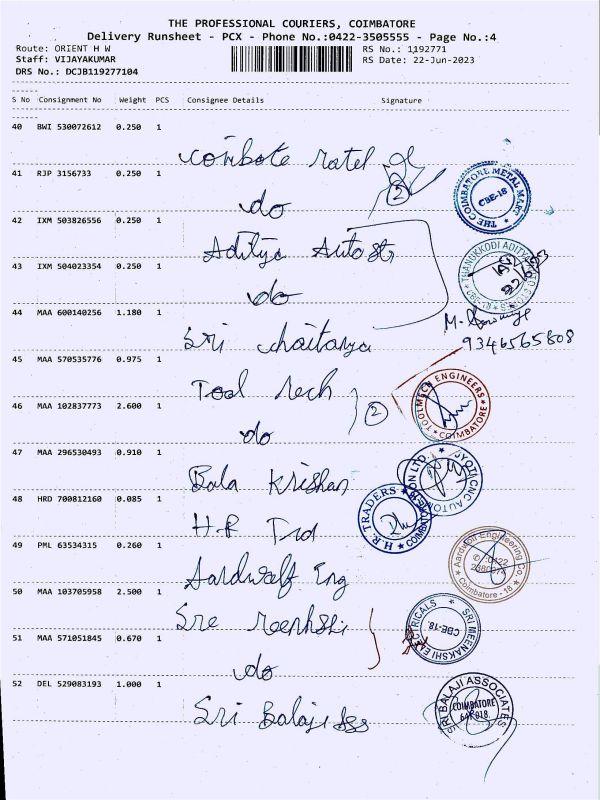 THE PROFESSIONAL COURIERS, COIMBATORE
Delivery Runsheet - PCX - Phone No.:0422-3505555 - Page No.:4
Route: ORIENT H W
RS No.: 1192771
Staff: VIJAYAKUMAR
RS Date: 22-Jun-2023
DRS No.: DCJB119277104
S No Consignment No Weight PCS Consignee Details Signature
40 BWI 530072612 0.250 1
41 RJP 3156733 0.250 1
do
2
THE COIMBATORE METAL MART
CBE-18
42 IXM 503826556 0.250 1
Aditya Auto
43 IXM 504023354 0.250 1
do
44 MAA 600140256 1.180 1
Sri Chaitanya
9346565808
45 MAA 570535776 0.975 1
Tool Tech
46 MAA 102837773 2.600 1
do
2
TOOLMECH ENGINEERS
COIMBATORE
47 MAA 296530493 0.910 1
Bala Krishan
48 HRD 700812160 0.085 1
H.R Trd
H.R. TRADERS
COIMBATORE
49 PML 63534315 0.260 1
Aardwolf Eng
Aardwolf Engineering Co.
Coimbatore - 18
50 MAA 103705958 2.500 1
Sre
51 MAA 571051845 0.670 1
do
SRI MEENAKSHI ELECTRICALS
CBE-18.
52 DEL 529083193 1.000 1
Sri Balaji Ass
SRI BALAJI ASSOCIATES
COIMBATORE
641 018.